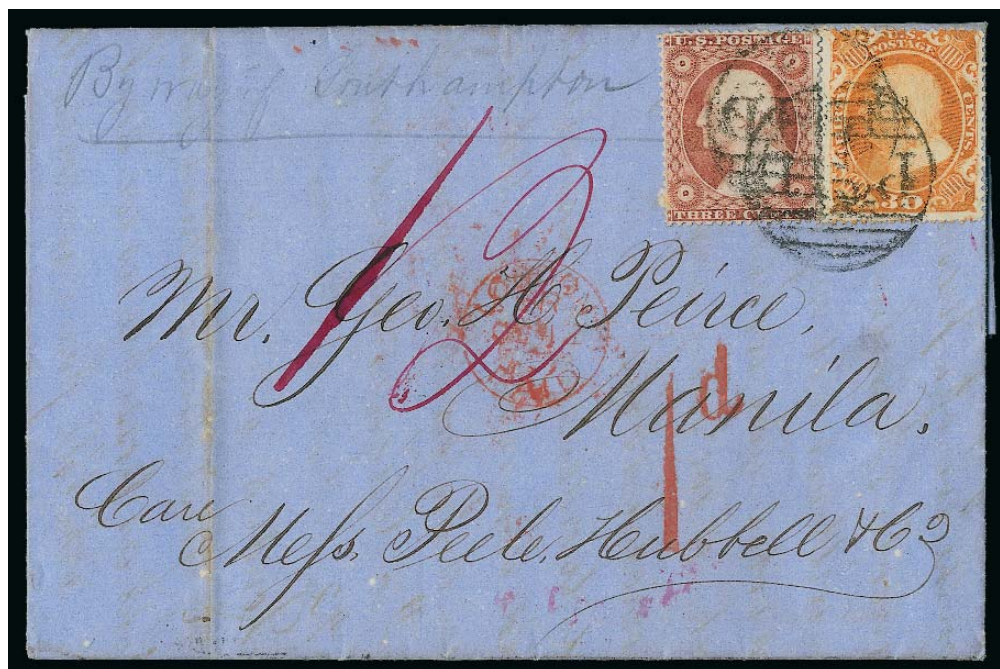 By way of Southampton
U.S. POSTAGE
THREE CENTS
U.S. POSTAGE
CENTS
30
PAID
12
Mr. Geo. H. Peirce,
Manila.
1d
Care
Mess. Peele, Hubbell & Co